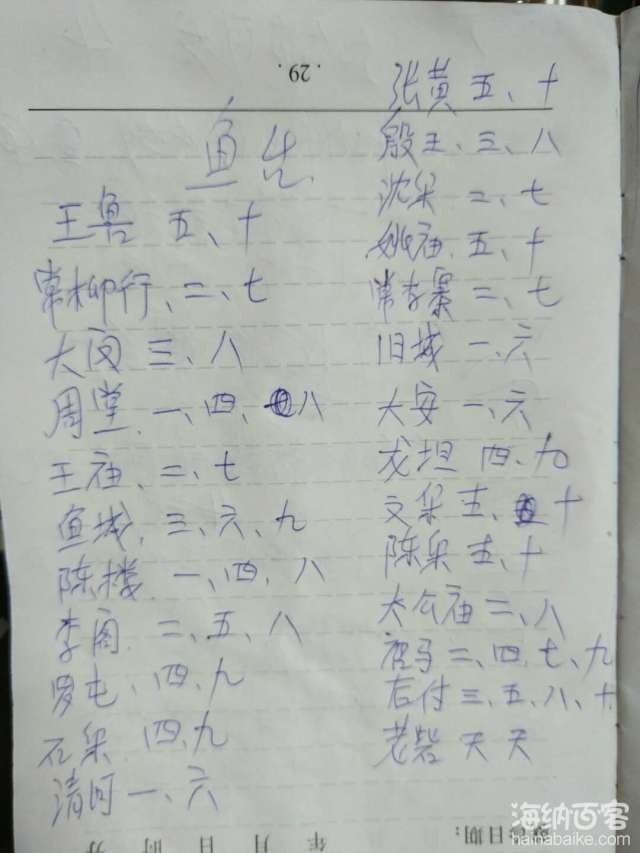 . 29 .
鱼台
王鲁 五、十
常柳行、二、七
大闵 三、八
周堂、一、四、八
王庙、二、七
鱼城、三、六、九
陈楼、一、四、八
李阁、二、五、八
罗屯、四、九
石集 四、九
清河 一、六
张黄 五、十
殷王、三、八
沈集 二、七
姚庙、五、十
常李寨 二、七
旧城 一、六
大安 一、六
戈坦 四、九
文集 五、十
陈集 五、十
大公庙 三、八
唐马 二、四、七、九
后付 三、五、八、十
老砦 天天
年 月 日 时 分
日期：
海纳百客
hainabaike.com